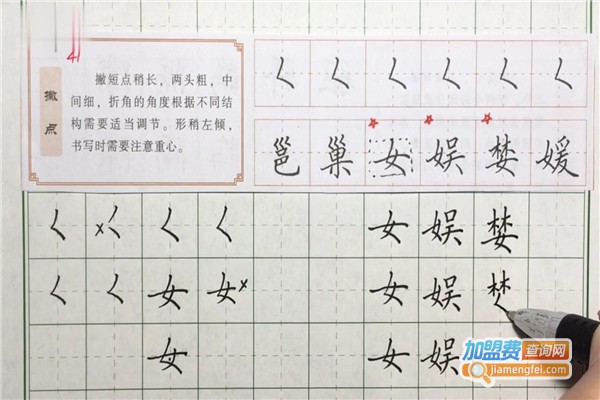 41
撇点
撇短点稍长，两头粗，中
间细，折角的角度根据不同结
构需要适当调节。形稍左倾，
书写时需要注意重心。
𡿨 𡿨 𡿨 𡿨 𡿨 𡿨
邕 巢 女 娱 婪 媛
𡿨 ×𡿨 𡿨 𡿨 女 娱 婪
𡿨 𡿨 女 女× 女 娱
女 女 娱
加盟费查询网
jiamengfei.com